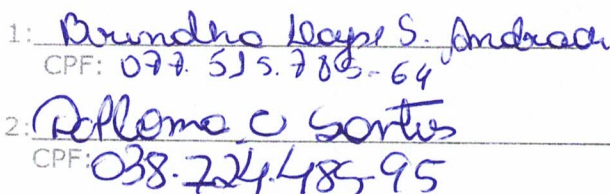 1: Brundho Lays S. Andrade
CPF: 077.515.785-64
2: Poliana C Santos
CPF: 038.724.485-95